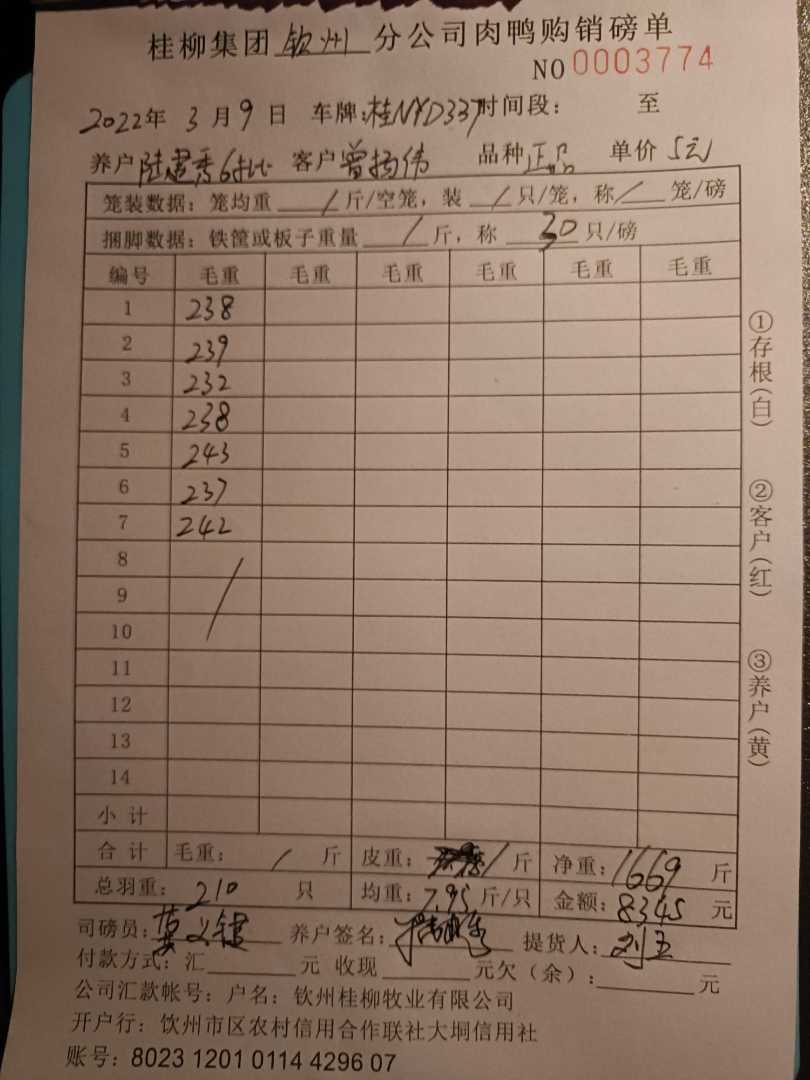 桂柳集团 钦州 分公司肉鸭购销磅单
NO 0003774
2022年 3月9日 车牌:桂NYD337 时间段: 至
养户 陆建秀6批 客户 曾扬伟 品种 正品 单价 5元
笼装数据:笼均重 / 斤/空笼,装 / 只/笼,称 / 笼/磅
捆脚数据:铁筐或板子重量 / 斤,称 30 只/磅
编号 毛重 毛重 毛重 毛重 毛重 毛重
1 238
2 239
3 232
4 238
5 243
6 237
7 242
8
9 /
10
11
12
13
14
小计
合计 毛重: / 斤 皮重: / 斤 净重: 1669 斤
总羽重: 210 只 均重: 7.95 斤/只 金额: 8345 元
司磅员: 养户签名: 提货人: 刘玉
付款方式:汇 元 收现 元欠(余): 元
公司汇款帐号:户名:钦州桂柳牧业有限公司
开户行:钦州市区农村信用合作联社大垌信用社
账号:8023 1201 0114 4296 07
①存根(白) ②客户(红) ③养户(黄)